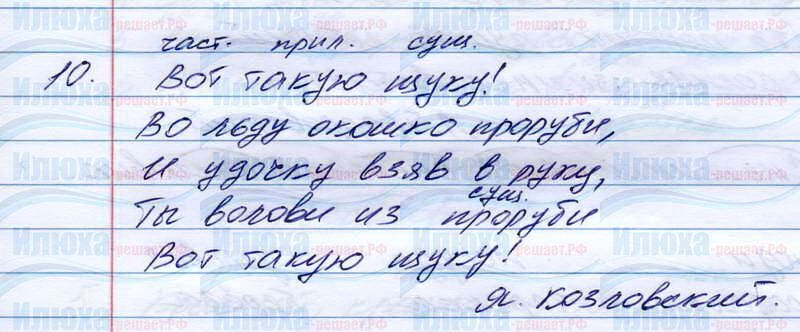 част. прил. сущ.
10. Вот такую щуку!
Во льду окошко проруби,
И удочку взяв в руку,
сущ.
Ты волови из проруби
Вот такую щуку!
Я. Козловский.